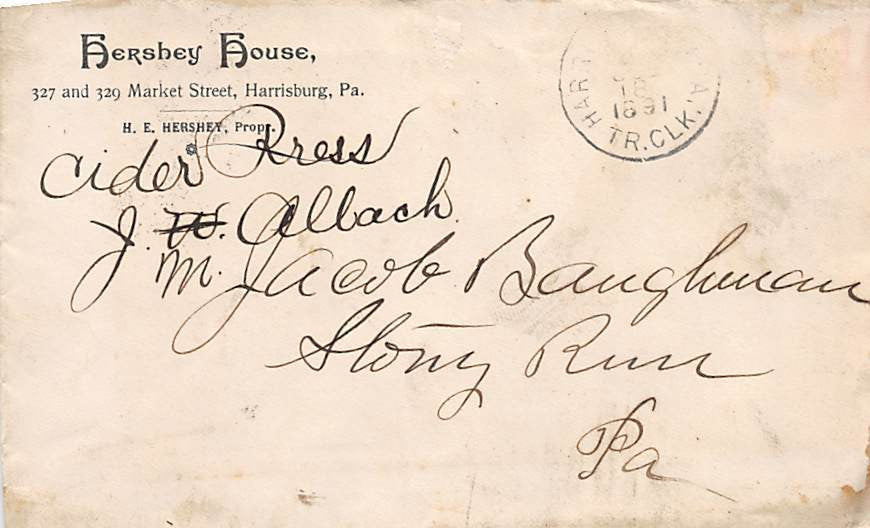 Hershey House,
327 and 329 Market Street, Harrisburg, Pa.
H. E. HERSHEY, Propr.
HAR A.
18
1891
TR. CLK.
Cider Press
J. W. Albach
M. Jacob Baughman
Stony Run
Pa